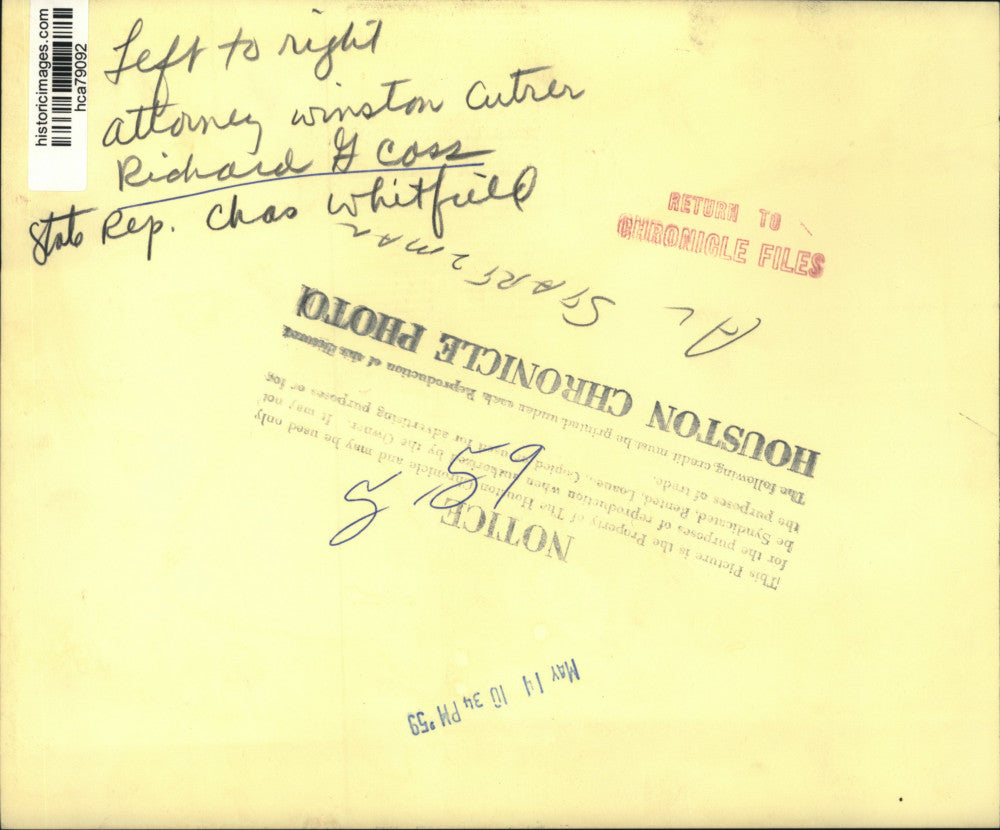 historicimages.com
hca79092
Left to right
attorney winston Cutrer
Richard G Coss
State Rep. Chas Whitfield
RETURN TO
CHRONICLE FILES
5 59
NOTICE
This Picture is the Property of The Houston Chronicle and may be used only
for the purposes of reproduction when authorized by the Owner. It may not
be Syndicated, Rented, Loaned, Copied, used for advertising purposes or for
the purposes of trade.
The following credit must be printed under each Reproduction of this Picture
HOUSTON CHRONICLE PHOTO
MAY 14 10 34 PM '59